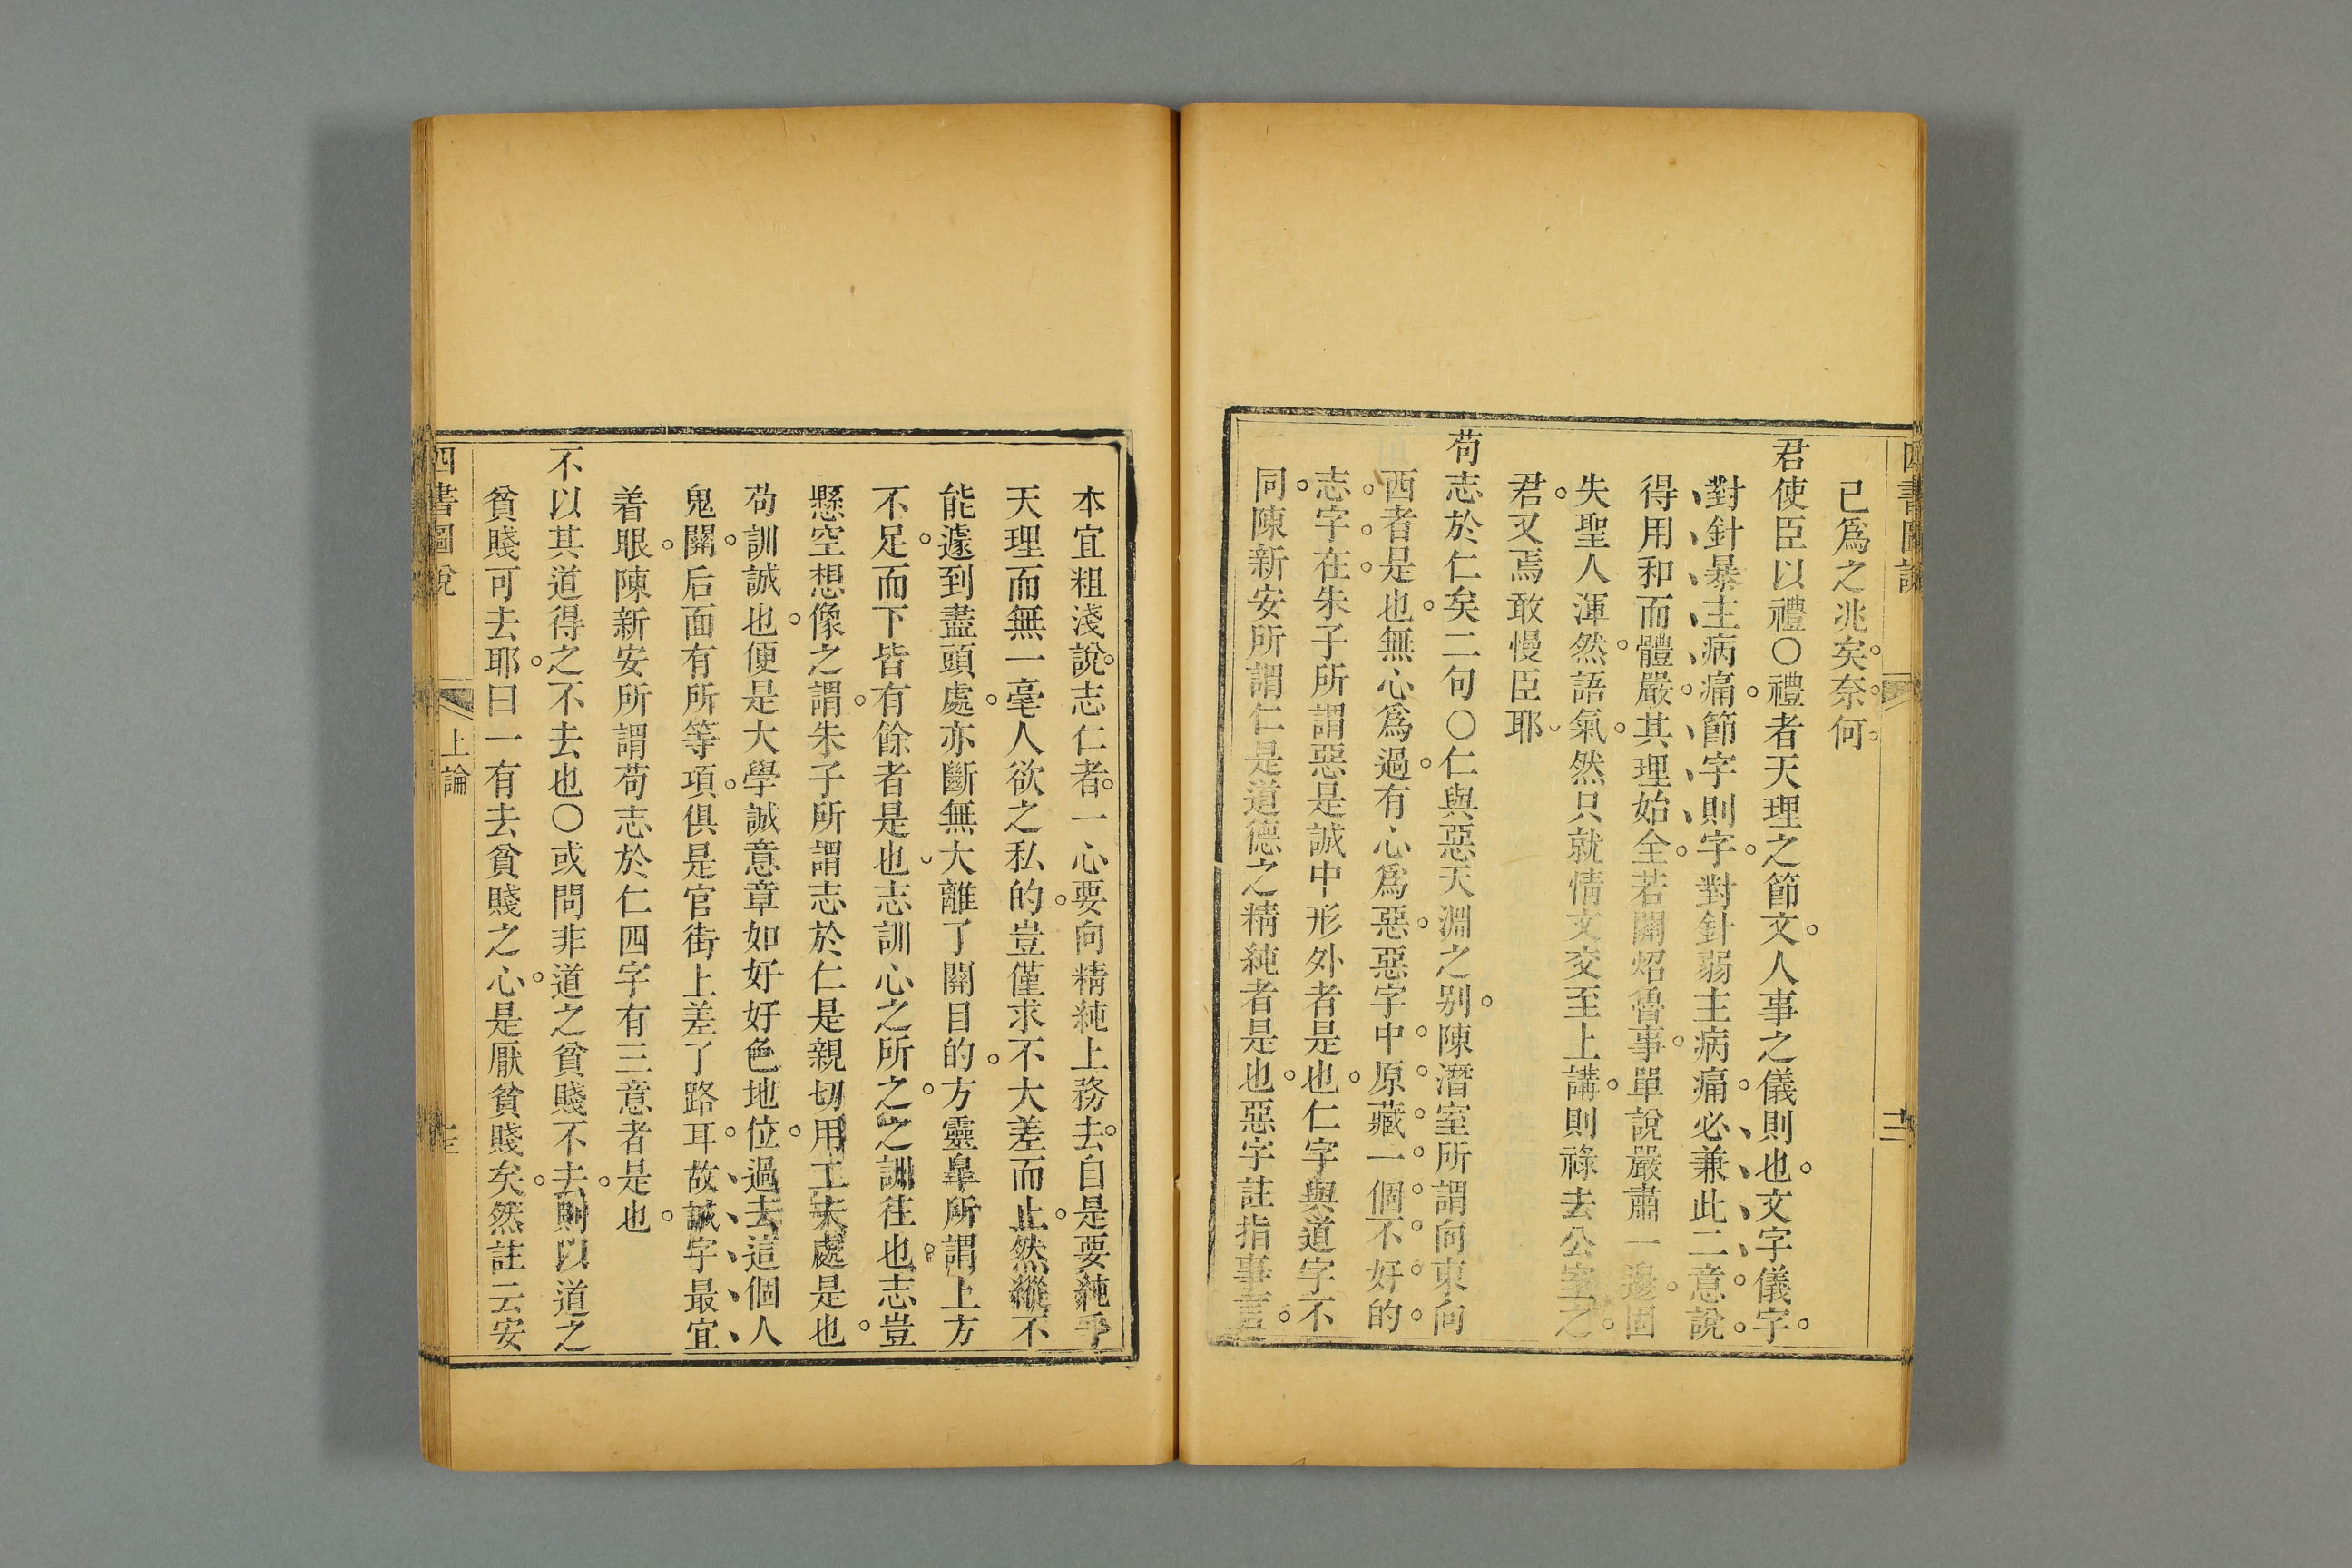 四書圖說
十二
已爲之兆矣奈何
君使臣以禮○禮者天理之節文人事之儀則也文字儀字
對針暴主病痛節字則字對針弱主病痛必兼此二意說
得用和而體嚴其理始全若開炤魯事單說嚴肅一邊固
失聖人渾然語氣然只就情文交至上講則祿去公室之
君又焉敢慢臣耶
苟志於仁矣二句○仁與惡天淵之别陳潛室所謂向東向
西者是也無心爲過有心爲惡惡字中原藏一個不好的
志字在朱子所謂惡是誠中形外者是也仁字與道字不
同陳新安所謂仁是道德之精純者是也惡字註指事言
本宜粗淺說志仁者一心要向精純上務去自是要純乎
天理而無一毫人欲之私的豈僅求不大差而止然縱不
能遽到盡頭處亦斷無大離了關目的方靈臯所謂上方
不足而下皆有餘者是也志訓心之所之之訓往也志豈
懸空想像之謂朱子所謂志於仁是親切用工夫處是也
苟訓誠也便是大學誠意章如好好色地位過去這個人
鬼關后面有所等項俱是官街上差了路耳故誠字最宜
着眼陳新安所謂苟志於仁四字有三意者是也
不以其道得之不去也○或問非道之貧賤不去則以道之
貧賤可去耶曰一有去貧賤之心是厭貧賤矣然註云安
四書圖說
上論